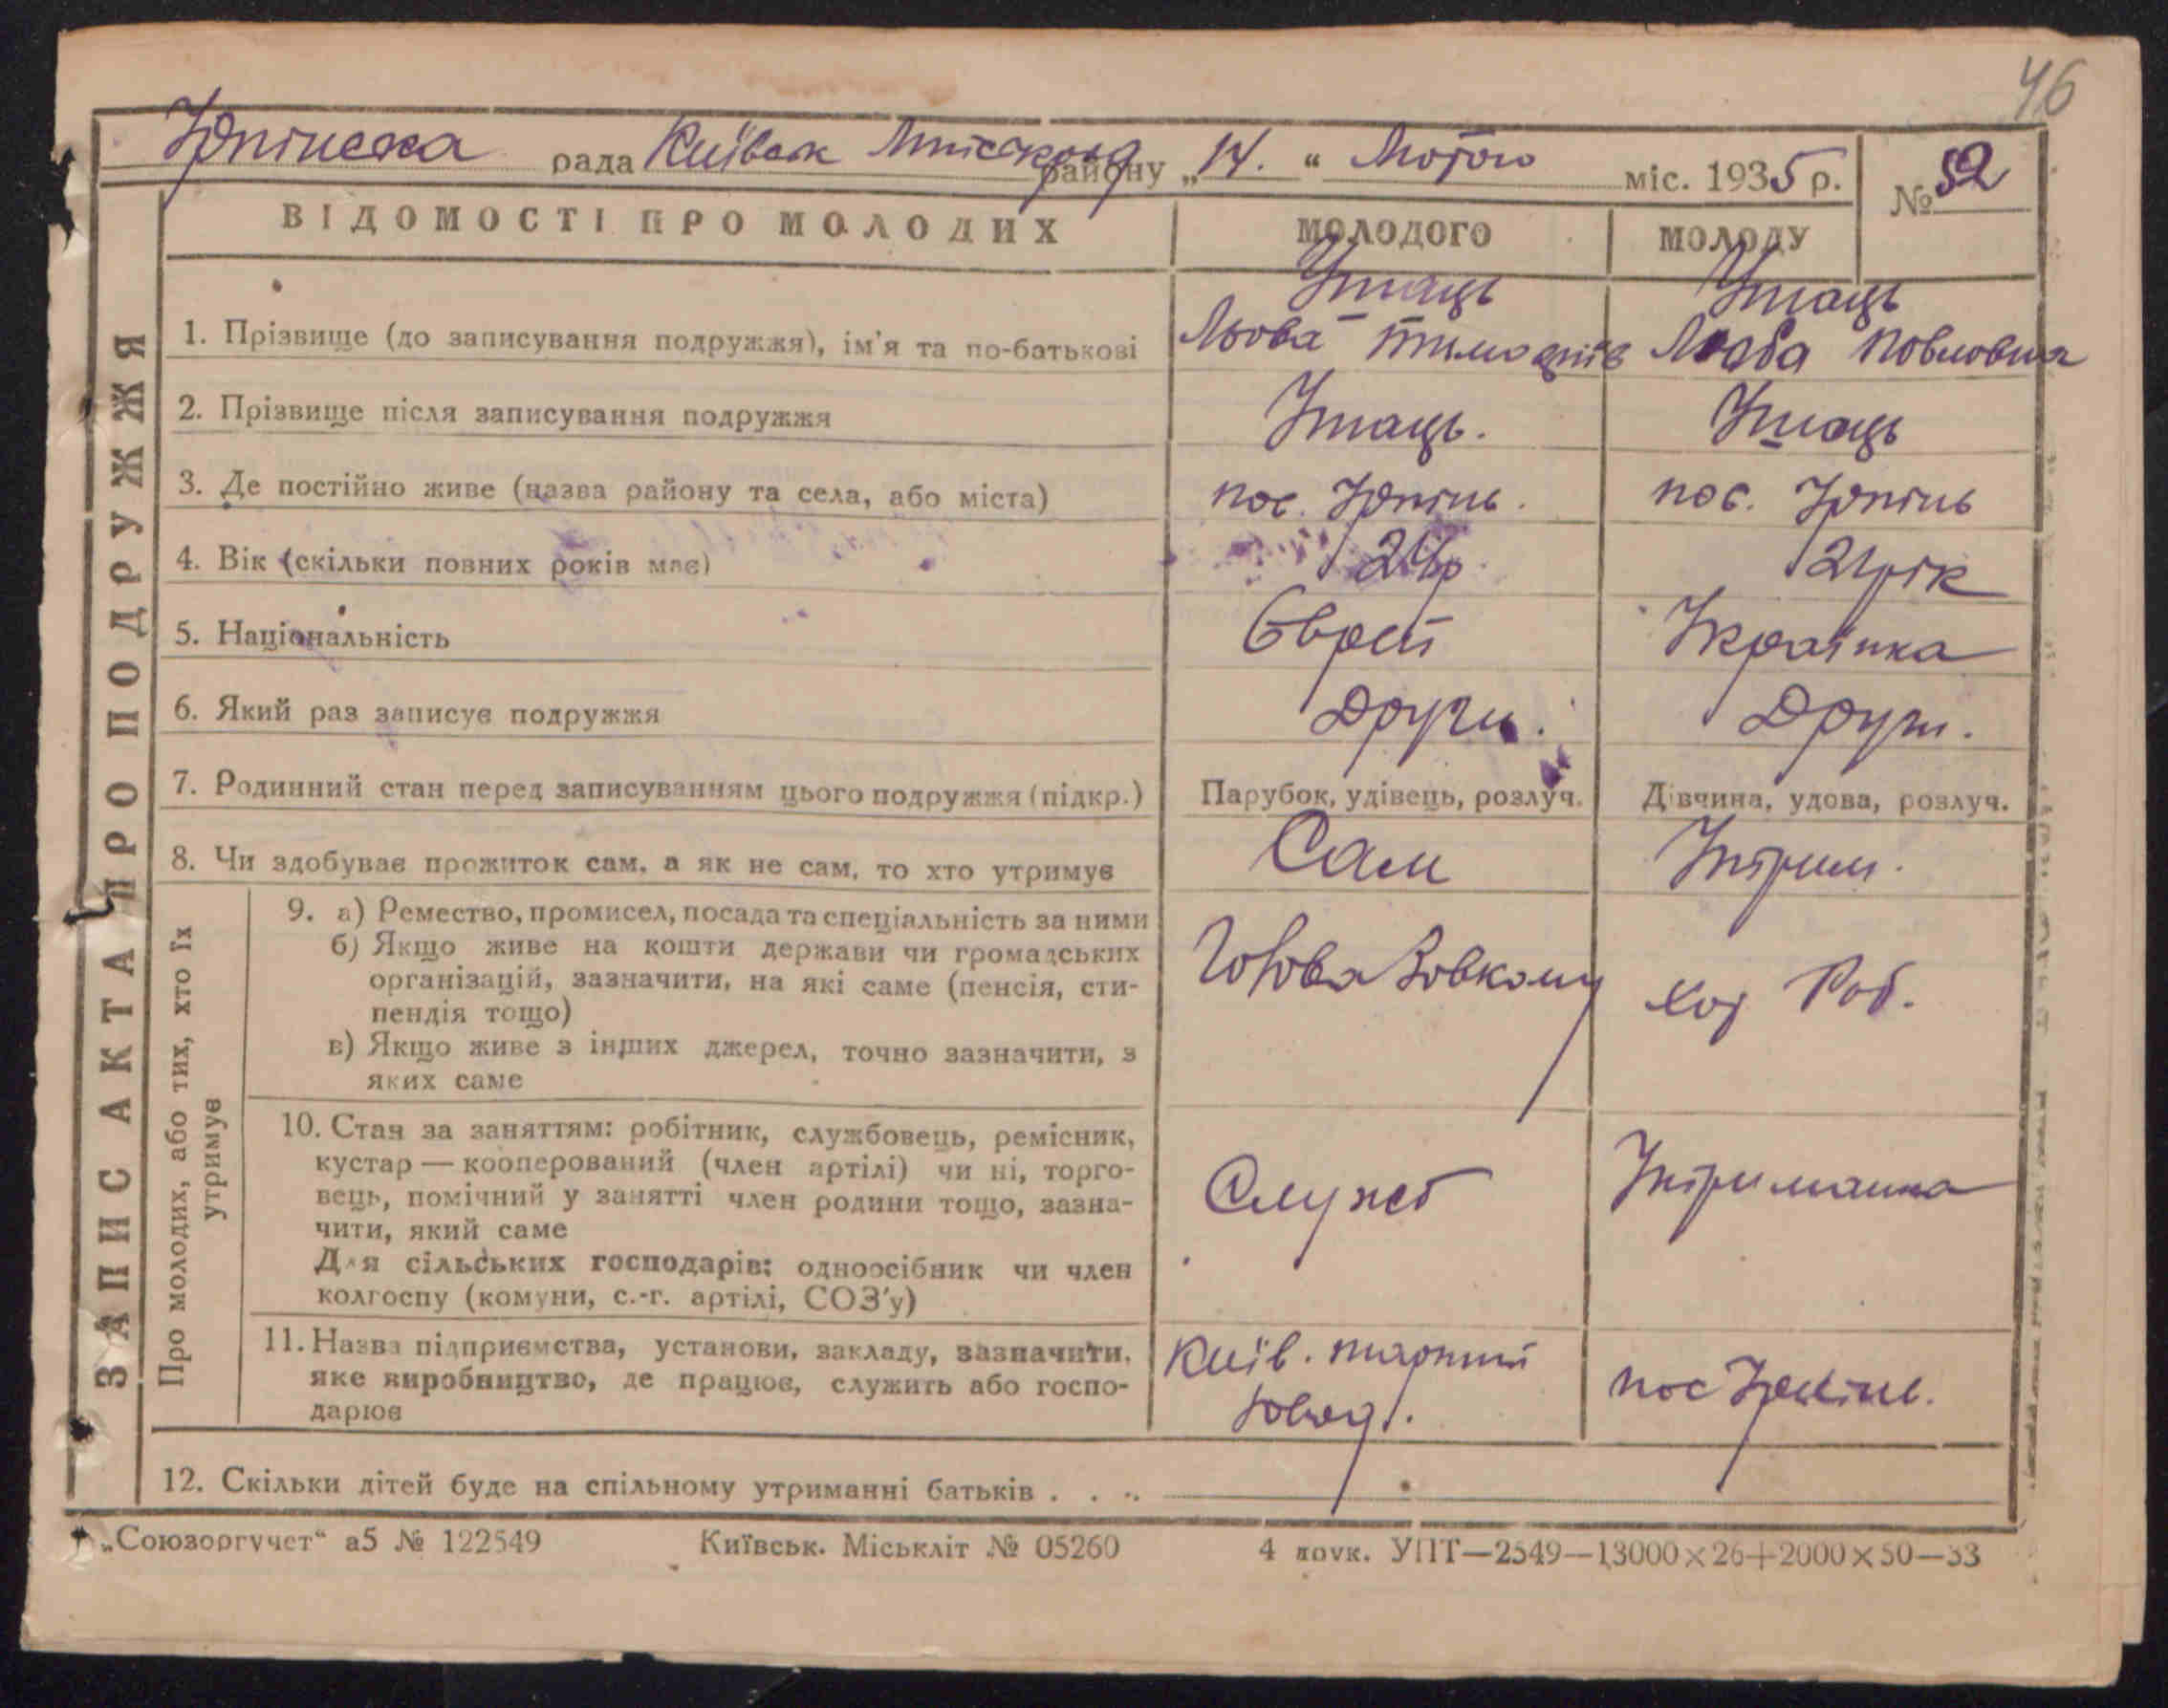 46
Ірпінська рада Київськ Міськрад району „14.“ Лютого міс. 1935 р. № 52
ВІДОМОСТІ ПРО МОЛОДИХ МОЛОДОГО МОЛОДУ
1. Прізвище (до записування подружжя), ім'я та по-батькові Льова Люба Повловна
2. Прізвище після записування подружжя
3. Де постійно живе (назва району та села, або міста) пос. Ірпінь. пос. Ірпінь
4. Вік (скільки повних років має) 24р. 21рік
5. Національність Єврей Українка
6. Який раз записує подружжя Други. Други.
7. Родинний стан перед записуванням цього подружжя (підкр.) Парубок, удівець, розлуч. Дівчина, удова, розлуч.
8. Чи здобуває прожиток сам, а як не сам, то хто утримує Сам Утрим.
9. а) Ремество, промисел, посада та спеціальність за ними
б) Якщо живе на кошти держави чи громадських
організацій, зазначити, на які саме (пенсія, сти-
пендія тощо)
в) Якщо живе з інших джерел, точно зазначити, з
яких саме
Голова Зовкому Роб.
10. Стан за заняттям: робітник, службовець, ремісник,
кустар — кооперований (член артілі) чи ні, торго-
вець, помічний у занятті член родини тощо, зазна-
чити, який саме
Для сільських господарів: одноосібник чи член
колгоспу (комуни, с.-г. артілі, СОЗ'у)
Служб Утриманка
11. Назва підприємства, установи, закладу, зазначити,
яке виробництво, де працює, служить або госпо-
дарює
Київ. тарний
завод.
пос Ірпінь.
12. Скільки дітей буде на спільному утриманні батьків . . .
ЗАПИС АКТА ПРО ПОДРУЖЖЯ
Про молодих, або тих, хто їх
утримує
„Союзоргучет“ а5 № 122549 Київськ. Міськліт № 05260 4 друк. УПТ—2549—13000×26+2000×50—33